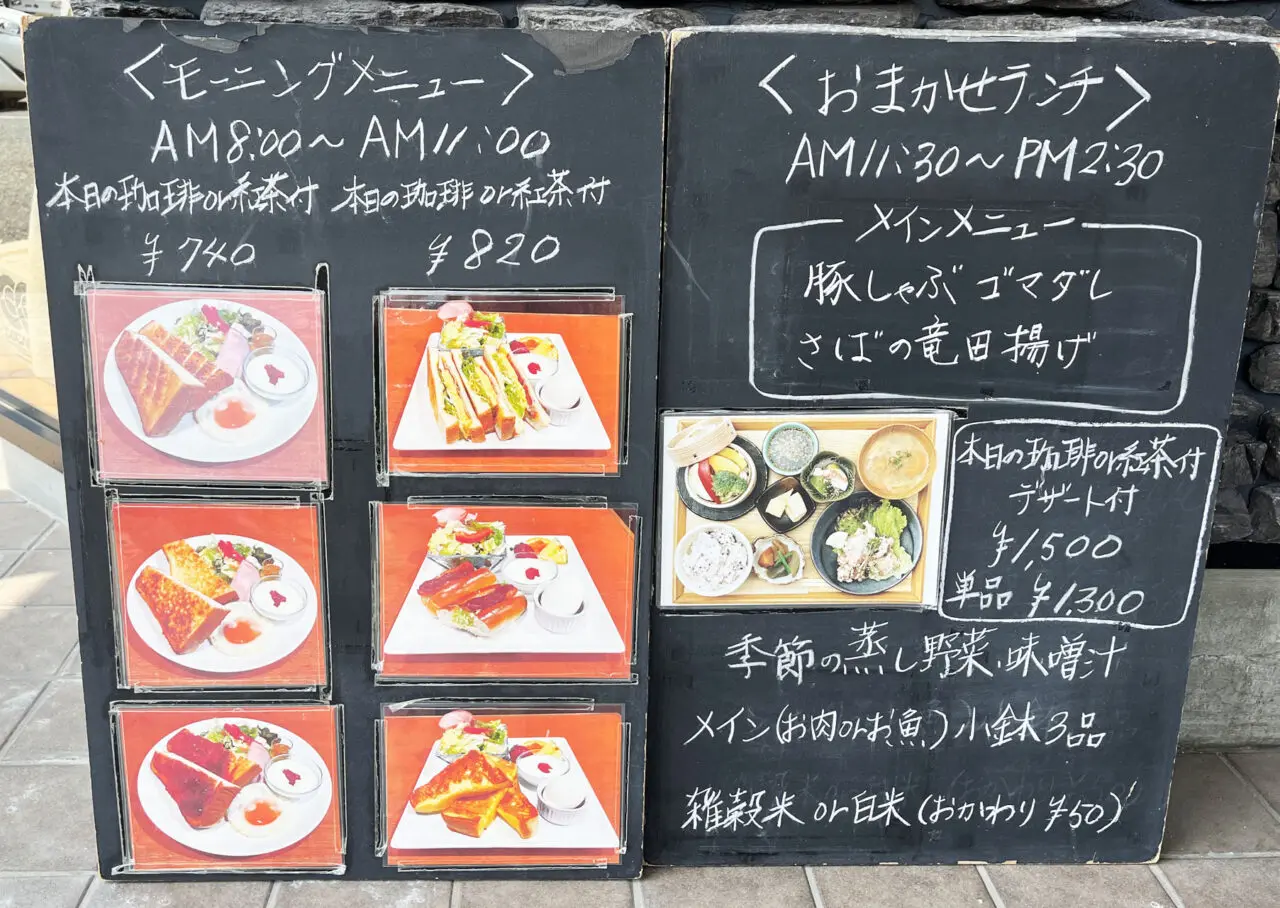 <モーニングメニュー>
AM8:00~AM11:00
本日の珈琲or紅茶付 本日の珈琲or紅茶付
¥740 ¥820
<おまかせランチ>
AM11:30~PM2:30
メインメニュー
豚しゃぶゴマダレ
さばの竜田揚げ
本日の珈琲or紅茶付
デザート付
¥1,500
単品 ¥1,300
季節の蒸し野菜・味噌汁
メイン(お肉orお魚)小鉢3品
雑穀米 or白米(おかわり¥50)